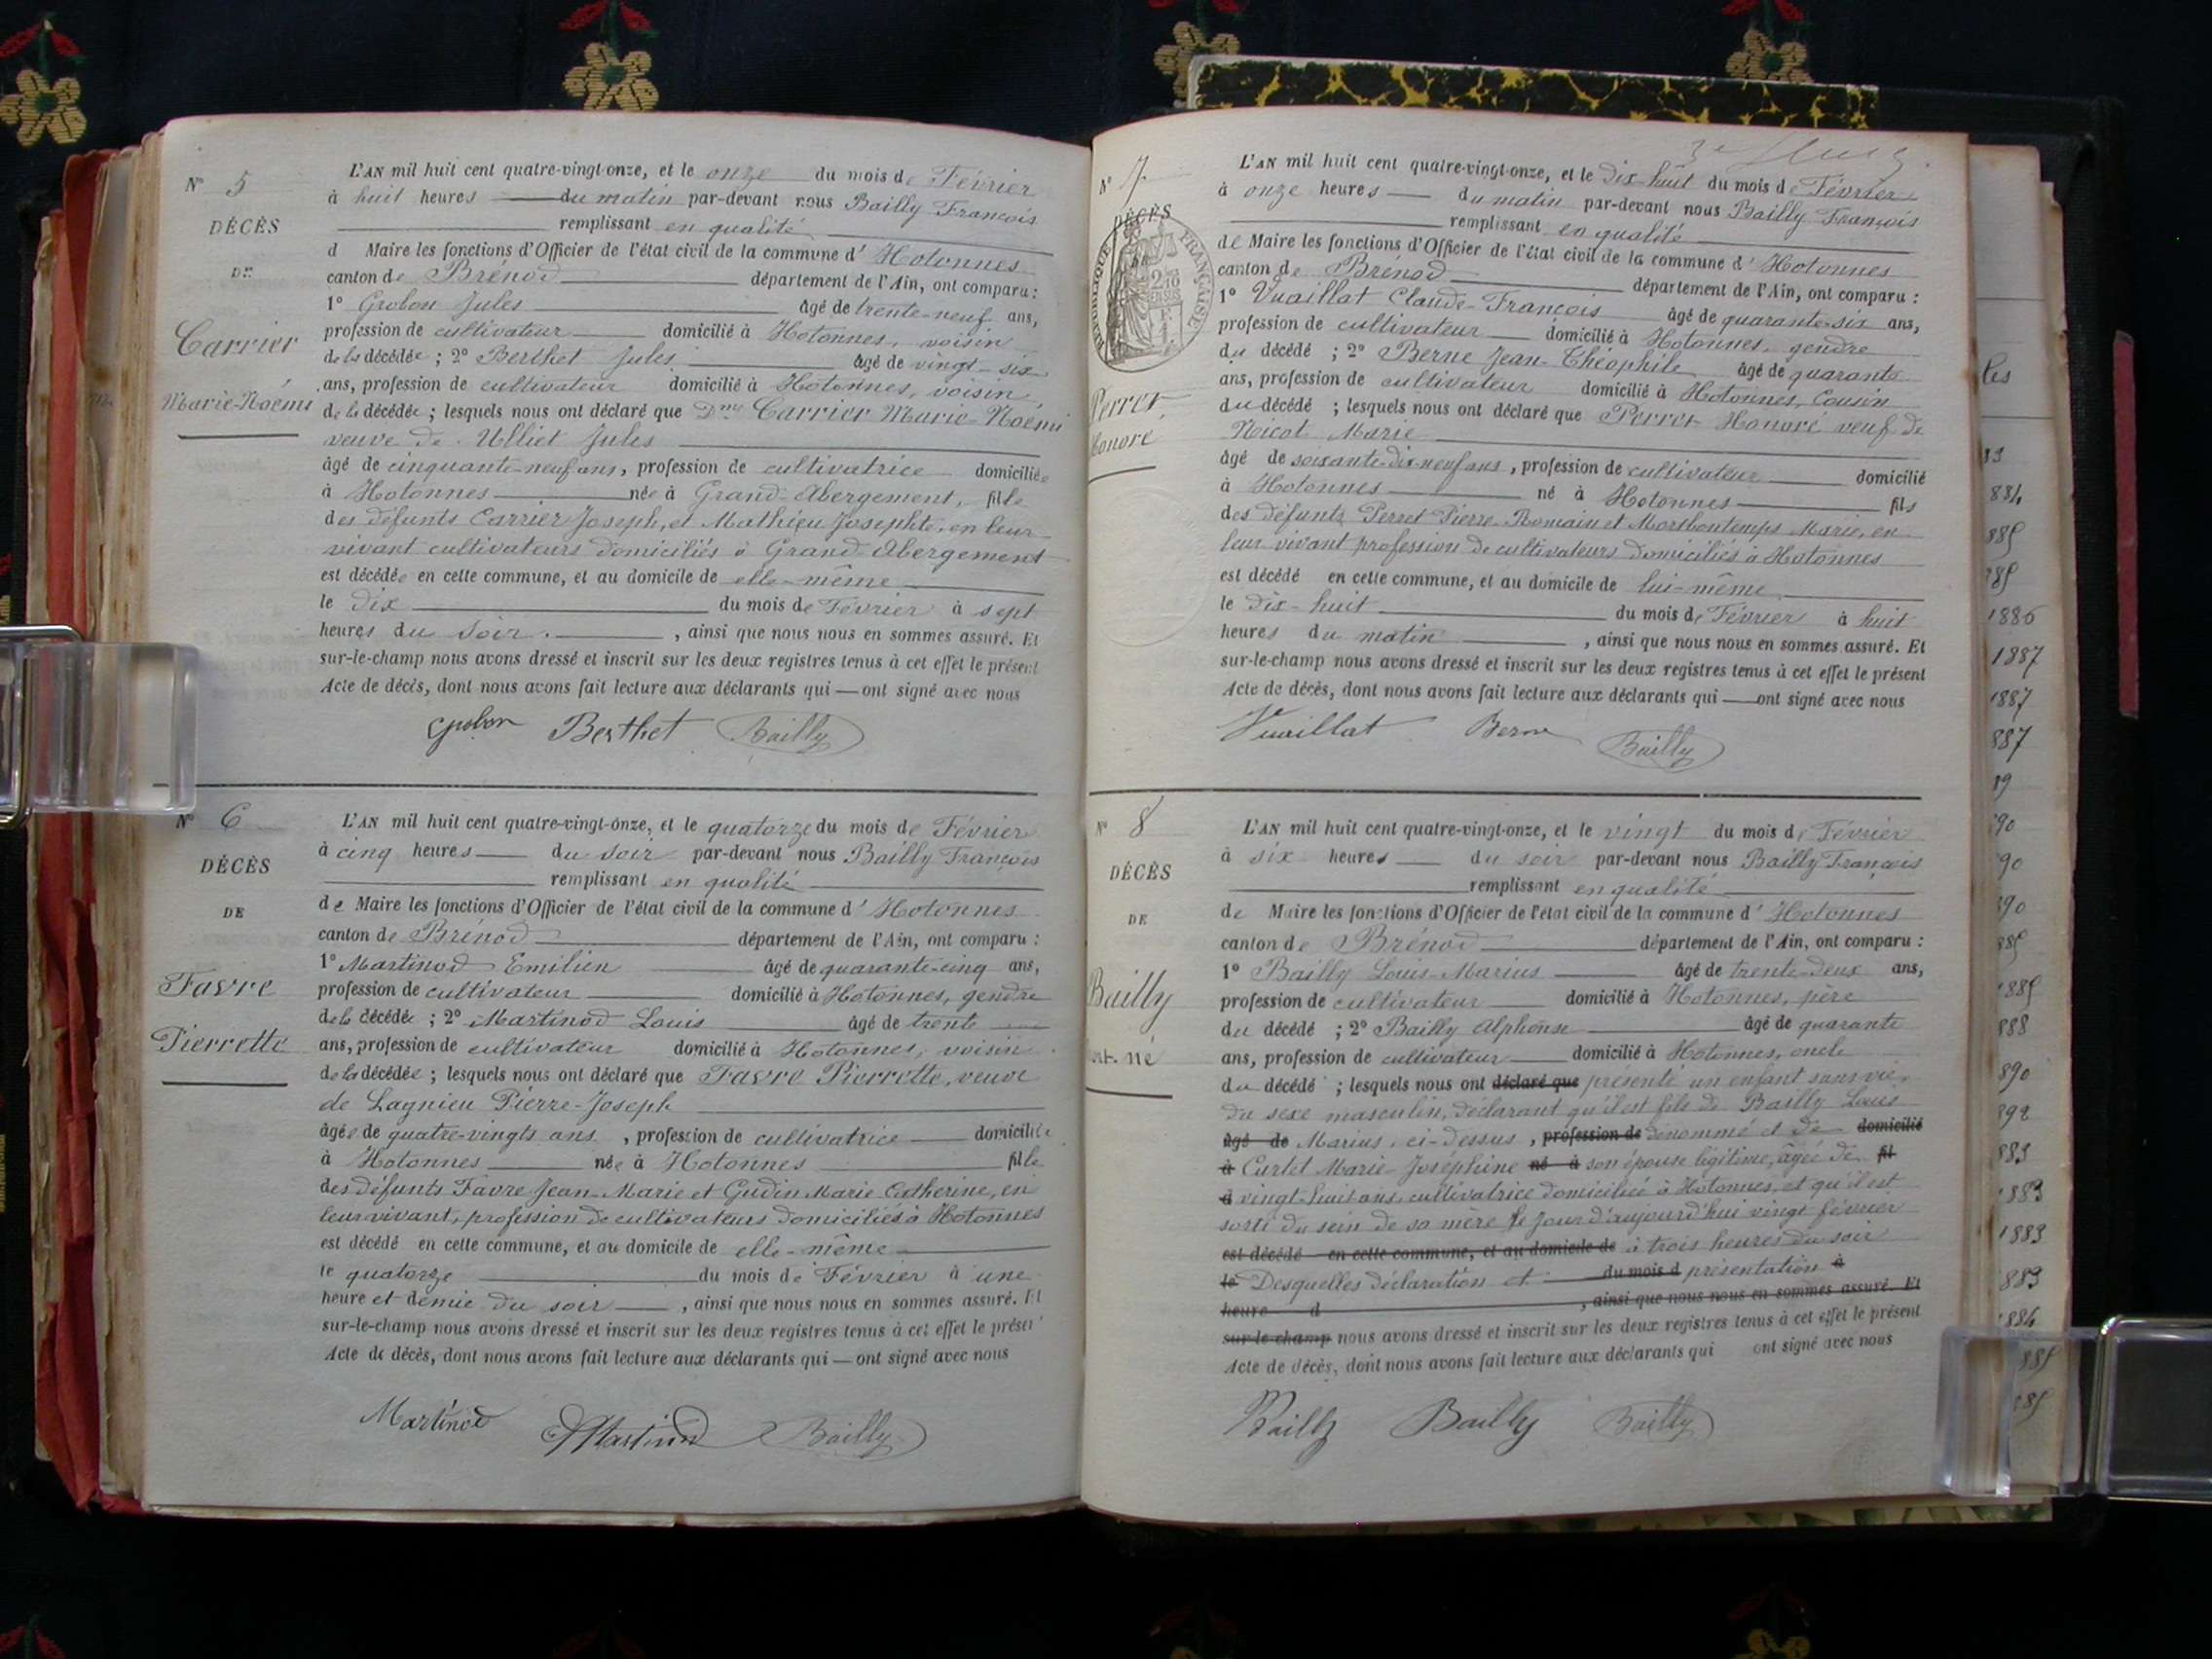 N° 5
DÉCÈS
DE
Carrier
Marie-Noémi
L'AN mil huit cent quatre-vingt-onze, et le onze du mois de Février
à huit heures du matin par-devant nous Bailly François
remplissant en qualité
d Maire les fonctions d'Officier de l'état civil de la commune d' Hotonnes
canton de Brénod département de l'Ain, ont comparu :
1° Grobon Jules âgé de trente-neuf ans,
profession de cultivateur domicilié à Hotonnes, voisin
de la décédée ; 2° Berthet Jules âgé de vingt-six
ans, profession de cultivateur domicilié à Hotonnes, voisin,
de la décédée ; lesquels nous ont déclaré que Dme Carrier Marie-Noémi
veuve de Ulliet Jules
âgé de cinquante-neuf ans, profession de cultivatrice domiciliée
à Hotonnes née à Grand-Abergement, fille
des défunts Carrier Joseph, et Mathieu Josephte, en leur
vivant cultivateurs domiciliés à Grand-Abergement
est décédée en cette commune, et au domicile de elle-même
le dix du mois de Février à sept
heures du soir. , ainsi que nous nous en sommes assuré. Et
sur-le-champ nous avons dressé et inscrit sur les deux registres tenus à cet effet le présent
Acte de décès, dont nous avons fait lecture aux déclarants qui — ont signé avec nous
Grobon Berthet Bailly
N° 6
DÉCÈS
DE
Favre
Pierrette
L'AN mil huit cent quatre-vingt-onze, et le quatorze du mois de Février
à cinq heures du soir par-devant nous Bailly François
remplissant en qualité
de Maire les fonctions d'Officier de l'état civil de la commune d' Hotonnes
canton de Brénod département de l'Ain, ont comparu :
1° Martinod Emilien âgé de quarante-cinq ans,
profession de cultivateur domicilié à Hotonnes, gendre
de la décédée ; 2° Martinod Louis âgé de trente
ans, profession de cultivateur domicilié à Hotonnes, voisin
de la décédée ; lesquels nous ont déclaré que Favre Pierrette, veuve
de Lagnieu Pierre-Joseph
âgée de quatre-vingts ans , profession de cultivatrice domiciliée
à Hotonnes née à Hotonnes fille
des défunts Favre Jean-Marie et Gudin Marie-Catherine, en
leur vivant, profession de cultivateurs domiciliés à Hotonnes
est décédé en cette commune, et au domicile de elle-même
le quatorze du mois de Février à une
heure et demie du soir , ainsi que nous nous en sommes assuré. Et
sur-le-champ nous avons dressé et inscrit sur les deux registres tenus à cet effet le présent
Acte de décès, dont nous avons fait lecture aux déclarants qui — ont signé avec nous
Martinod Martinod Bailly
N° 7
DÉCÈS
RÉPUBLIQUE FRANÇAISE
Perret
Honoré
L'AN mil huit cent quatre-vingt-onze, et le dix-huit du mois de Février
à onze heures du matin par-devant nous Bailly François
remplissant en qualité
de Maire les fonctions d'Officier de l'état civil de la commune d' Hotonnes
canton de Brénod département de l'Ain, ont comparu :
1° Vuaillat Claude-François âgé de quarante-six ans,
profession de cultivateur domicilié à Hotonnes, gendre
du décédé ; 2° Berne Jean-Théophile âgé de quarante
ans, profession de cultivateur domicilié à Hotonnes, Cousin
du décédé ; lesquels nous ont déclaré que Perret Honoré veuf de
Nicot Marie
âgé de soixante-dix-neuf ans, profession de cultivateur domicilié
à Hotonnes né à Hotonnes fils
des défunts Perret Pierre-Romain et Mortbontemps Marie, en
leur vivant profession de cultivateurs domiciliés à Hotonnes
est décédé en cette commune, et au domicile de lui-même
le dix-huit du mois de Février à huit
heures du matin , ainsi que nous nous en sommes assuré. Et
sur-le-champ nous avons dressé et inscrit sur les deux registres tenus à cet effet le présent
Acte de décès, dont nous avons fait lecture aux déclarants qui — ont signé avec nous
Vuaillat Berne Bailly
N° 8
DÉCÈS
DE
Bailly
mort-né
L'AN mil huit cent quatre-vingt-onze, et le vingt du mois de Février
à six heures du soir par-devant nous Bailly François
remplissant en qualité
de Maire les fonctions d'Officier de l'état civil de la commune d' Hotonnes
canton de Brénod département de l'Ain, ont comparu :
1° Bailly Louis-Marius âgé de trente-deux ans,
profession de cultivateur domicilié à Hotonnes, père
du décédé ; 2° Bailly Alphonse âgé de quarante
ans, profession de cultivateur domicilié à Hotonnes, oncle
du décédé ; lesquels nous ont déclaré que présenté un enfant sans vie,
du sexe masculin, déclarant qu'il est fils de Bailly Louis
âgé de Marius, ci-dessus, profession de dénommé et de domicilié
à Curtet Marie-Joséphine né à son épouse légitime, âgée de fil
d vingt-huit ans, cultivatrice domiciliée à Hotonnes, et qu'il est
sorti du sein de sa mère le jour d'aujourd'hui vingt février
est décédé en cette commune, et au domicile de à trois heures du soir
le Desquelles déclaration et du mois d présentation à
heure d , ainsi que nous nous en sommes assuré. Et
sur-le-champ nous avons dressé et inscrit sur les deux registres tenus à cet effet le présent
Acte de décès, dont nous avons fait lecture aux déclarants qui ont signé avec nous
Bailly Bailly Bailly
les
1886
1887
1887
887
89
890
892
883
1883
1883
883